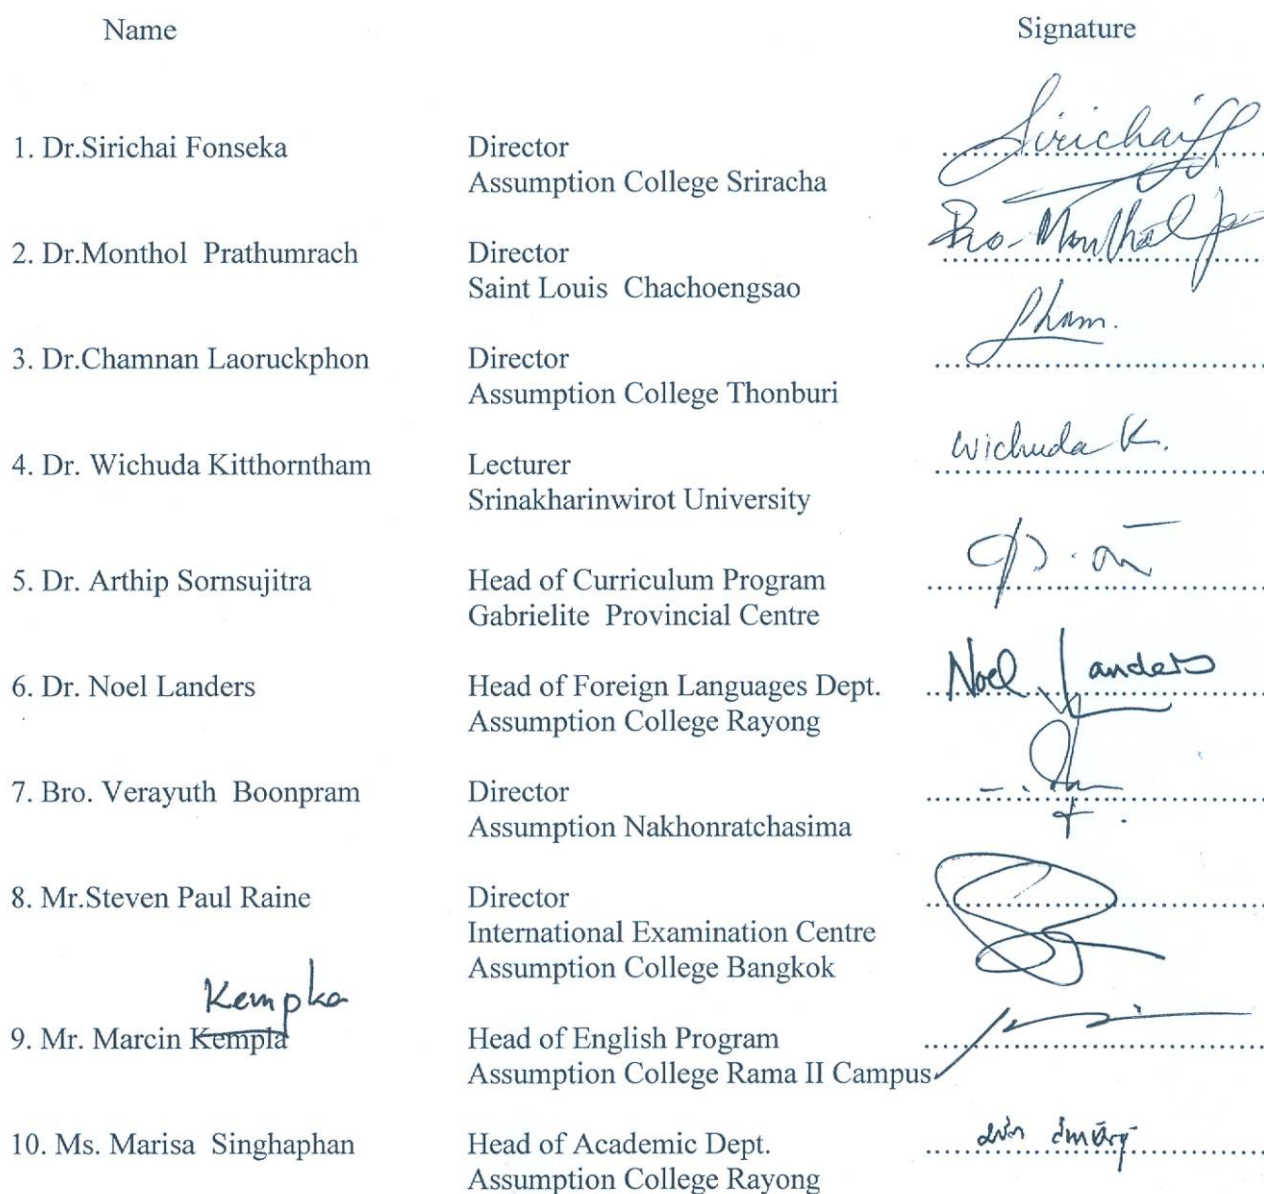 Name Signature
1. Dr.Sirichai Fonseka Director Sirichai
Assumption College Sriracha
2. Dr.Monthol Prathumrach Director Bro-Monthol
Saint Louis Chachoengsao
3. Dr.Chamnan Laoruckphon Director
Assumption College Thonburi
4. Dr. Wichuda Kitthorntham Lecturer Wichuda K.
Srinakharinwirot University
5. Dr. Arthip Sornsujitra Head of Curriculum Program
Gabrielite Provincial Centre
6. Dr. Noel Landers Head of Foreign Languages Dept. Noel Landers
Assumption College Rayong
7. Bro. Verayuth Boonpram Director
Assumption Nakhonratchasima
8. Mr.Steven Paul Raine Director
International Examination Centre
Assumption College Bangkok
Kempka
9. Mr. Marcin Kempla Head of English Program
Assumption College Rama II Campus
10. Ms. Marisa Singhaphan Head of Academic Dept.
Assumption College Rayong